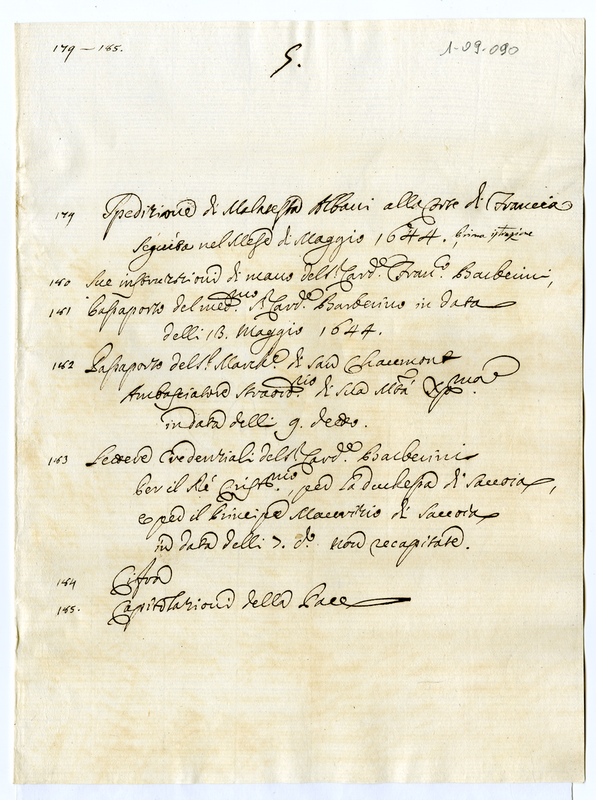 179 – 185.
1-09-090
5.
179 Spedizione di Malatesta Albani alla Corte di Francia
Seguita nel Mese di Maggio 1644.
180 Sue instruzzioni di mano del Sr. Card.e Fran.o Barberini,
181 Passaporto del med.mo Sr. Card.e Barberino in data
delli 13. Maggio 1644.
182 Passaporto del Sr. March.e di San Chaumont
Ambasciatore straord.rio di Sua M.tà Xp.ma
in data delli 9. detto.
183 Lettere Credenziali del Sr. Card.e Barberini
per il Ré Crist.mo, per la duchessa di Savoia,
e per il Principe Maurizio di Savoia
in data delli 7. d.o non recapitate.
184 Cifra
185. Capitolazioni della Pace